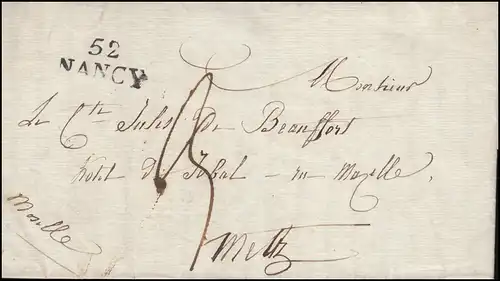 52
NANCY
Monsieur
Le Cte Jules De Beauffort
hotel du Jobal - ru Mozelle,
Moselle
Metz
3